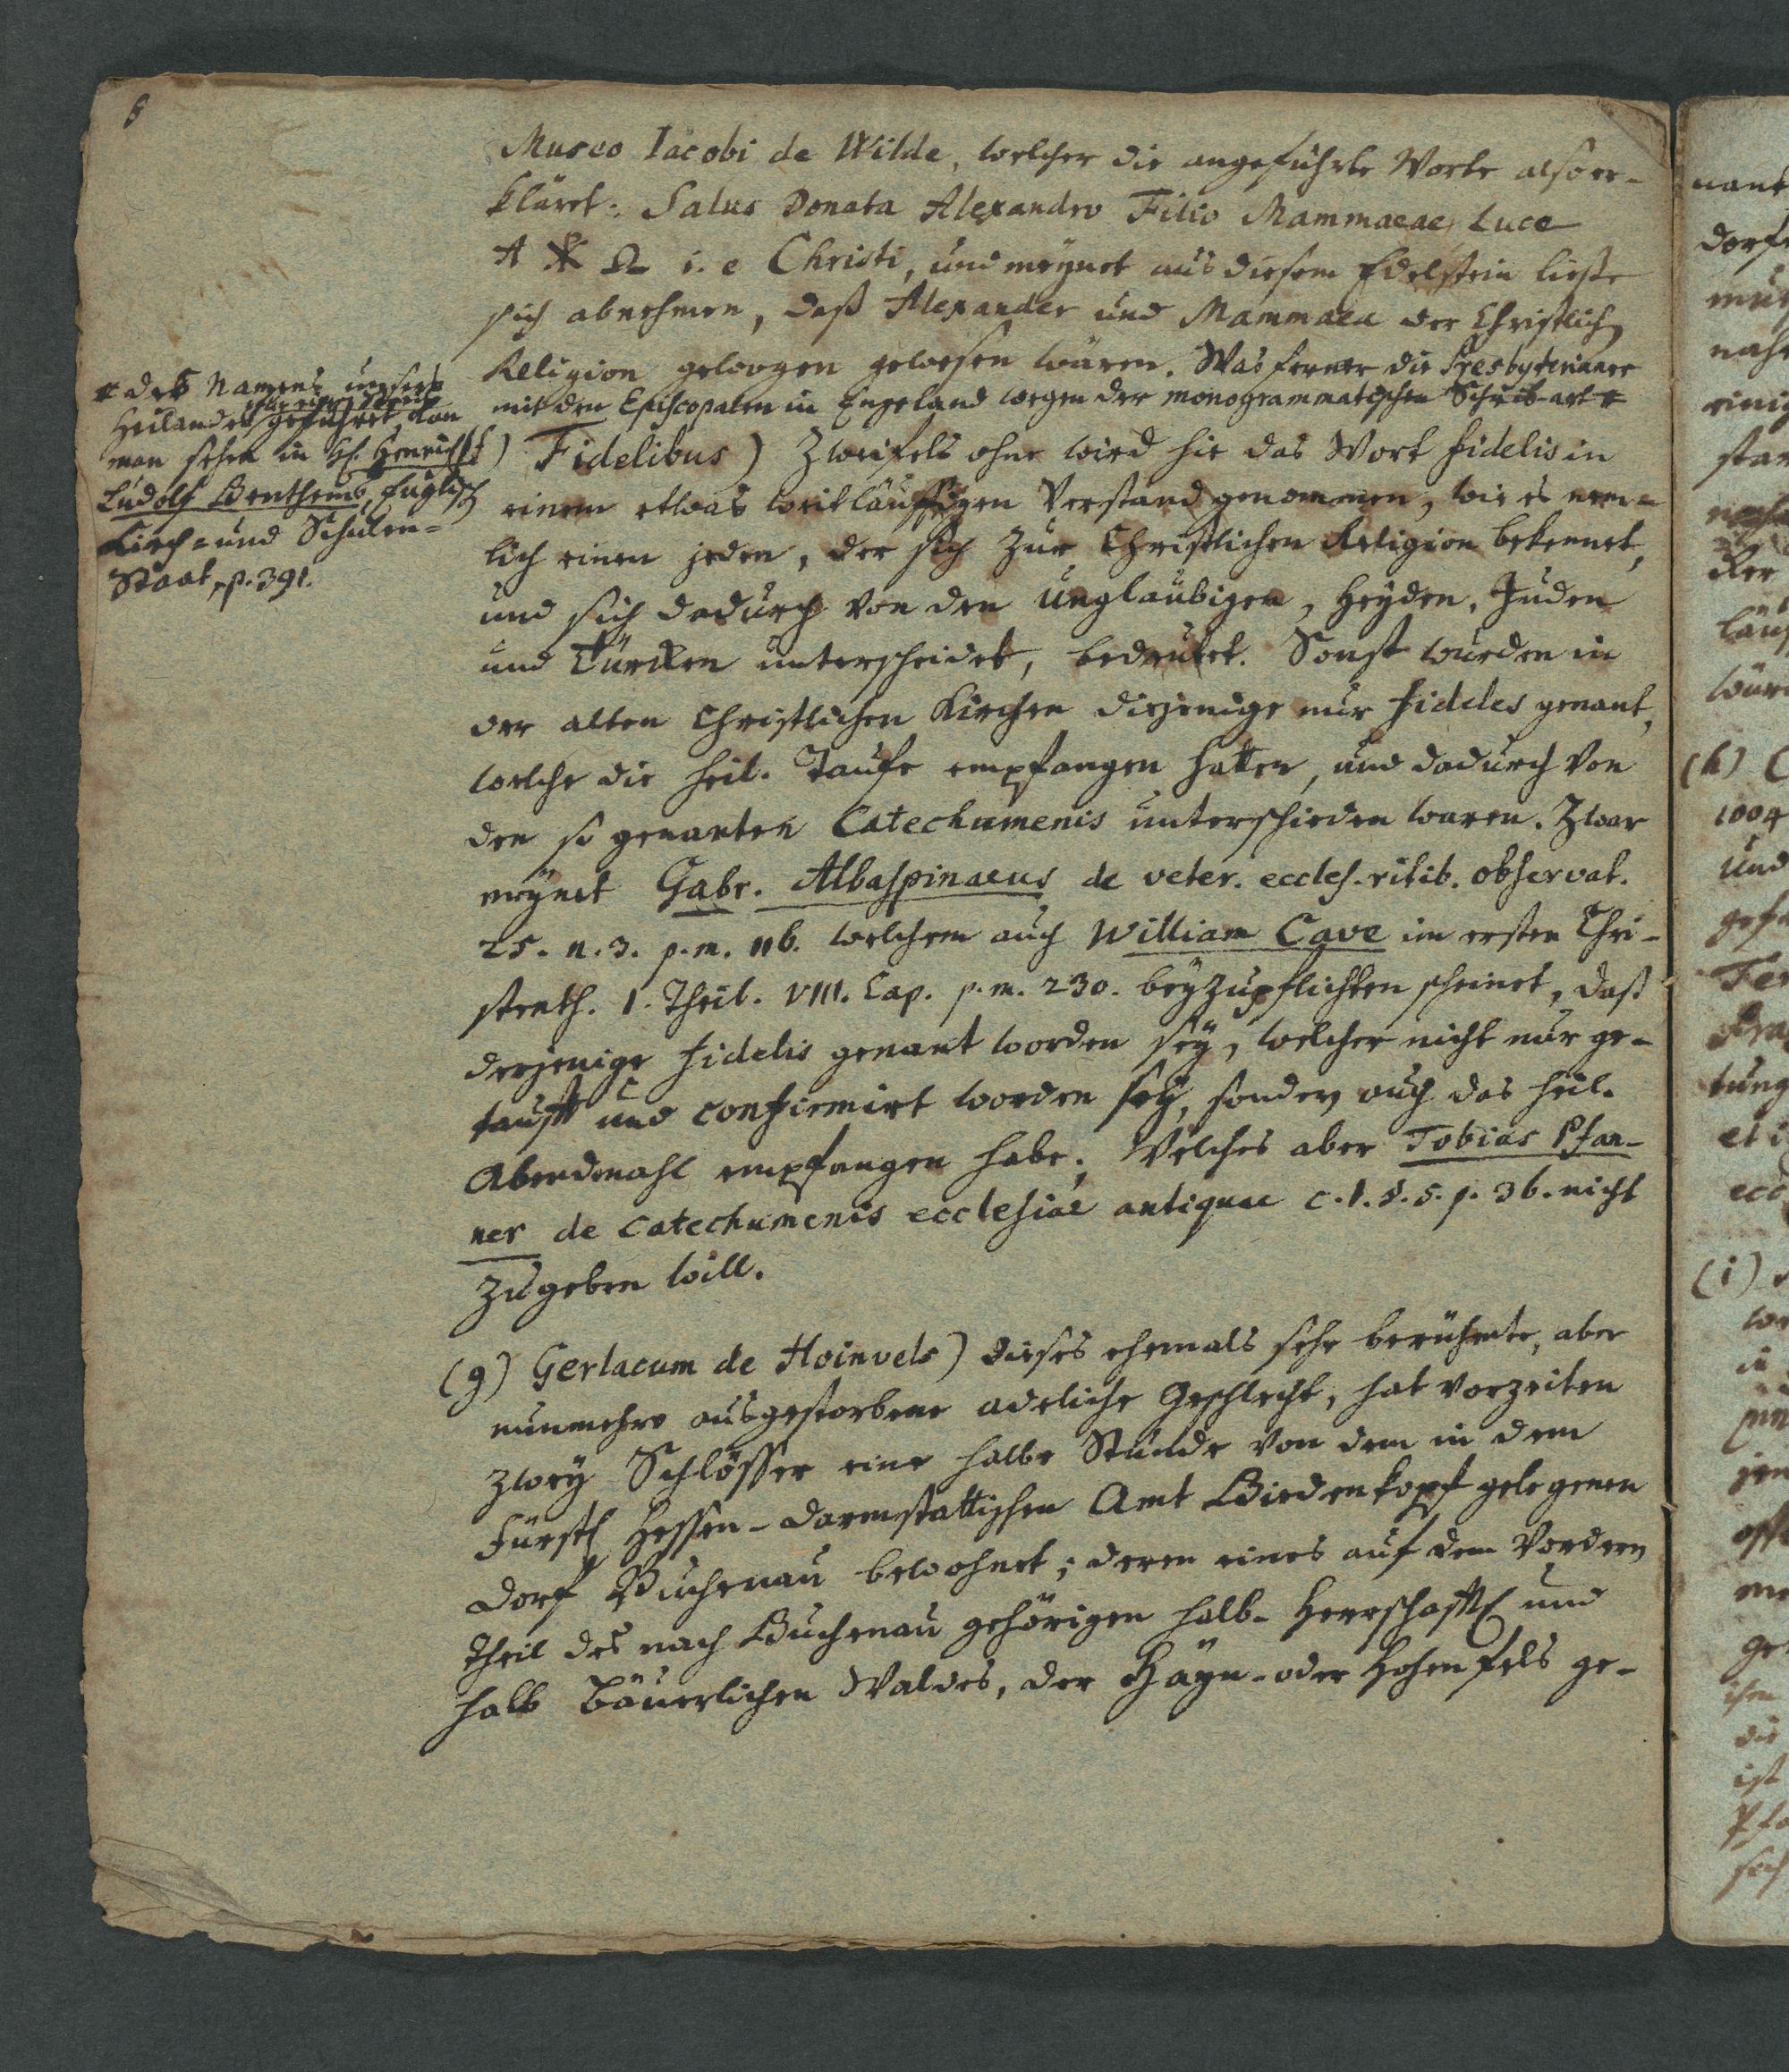 Museo Iacobi de Wilde, welcher die angeführte Worte also er-
kläret: Salus Donata Alexandro Filio Mammaeae Luce
A ☧ Ω i. e Christi, und meynet aus diesem Edelstein liesse
sich abnehmen, daß Alexander und Mammaea der Christlichen
Religion gewogen gewesen wären. Was ferner die Presbyterianer
mit den Episcopalen in Engeland wegen der monogrammatischen Schreib-art *
* des Namens unsers
Heilandes für einen Streit geführet, kan
man sehen in H. Henrich
Ludolf Benthems, Englisch
Kirch- und Schulen-
Staat, p. 391.
(f) Fidelibus) Zweifels ohne wird hie das Wort fidelis in
einem etwas weitläuffigen Verstand genommen, wie es nem-
lich einen jeden, der sich zur Christlichen Religion bekennet,
und sich dadurch von den Unglaubigen, Heyden, Juden
und Türcken unterscheidet, bedeutet. Sonst wurden in
der alten Christlichen Kirchen diejenige nur fideles genant,
welche die heil. Taufe empfangen hatten, und dadurch von
den so genanten Catechumenis unterschieden waren. Zwar
meynet Gabr. Albaspinaeus de veter. eccles. ritib. observat.
25. n. 3. p. m. 116. welchem auch William Cave im ersten Chri-
stenth. 1. Theil. VIII. Cap. p. m. 230. beyzupflichten scheinet, daß
derjenige fidelis genant worden sey, welcher nicht nur ge-
taufft und confirmirt worden sey, sondern auch das heil.
Abendmahl empfangen habe; Welches aber Tobias Pfan-
ner de catechumenis ecclesiae antiquae c. 1. §. 5. p. 36. nicht
zugeben will.
(g) Gerlacum de Hoinvels) dieses ehemals sehr berühmte, aber
nunmehro ausgestorbene adeliche Geschlecht, hat vorzeiten
zwey Schlösser eine halbe Stunde von dem in dem
Fürstl Hessen-Darmstattischen Amt Biedenkopf gelegenen
Dorf Buchenau bewohnet; deren eines auf dem Vordern
Theil des nach Buchenau gehörigen halb-Herrschafftl und
halb bäuerlichen Waldes, der Hayn- oder Hohenfels ge-